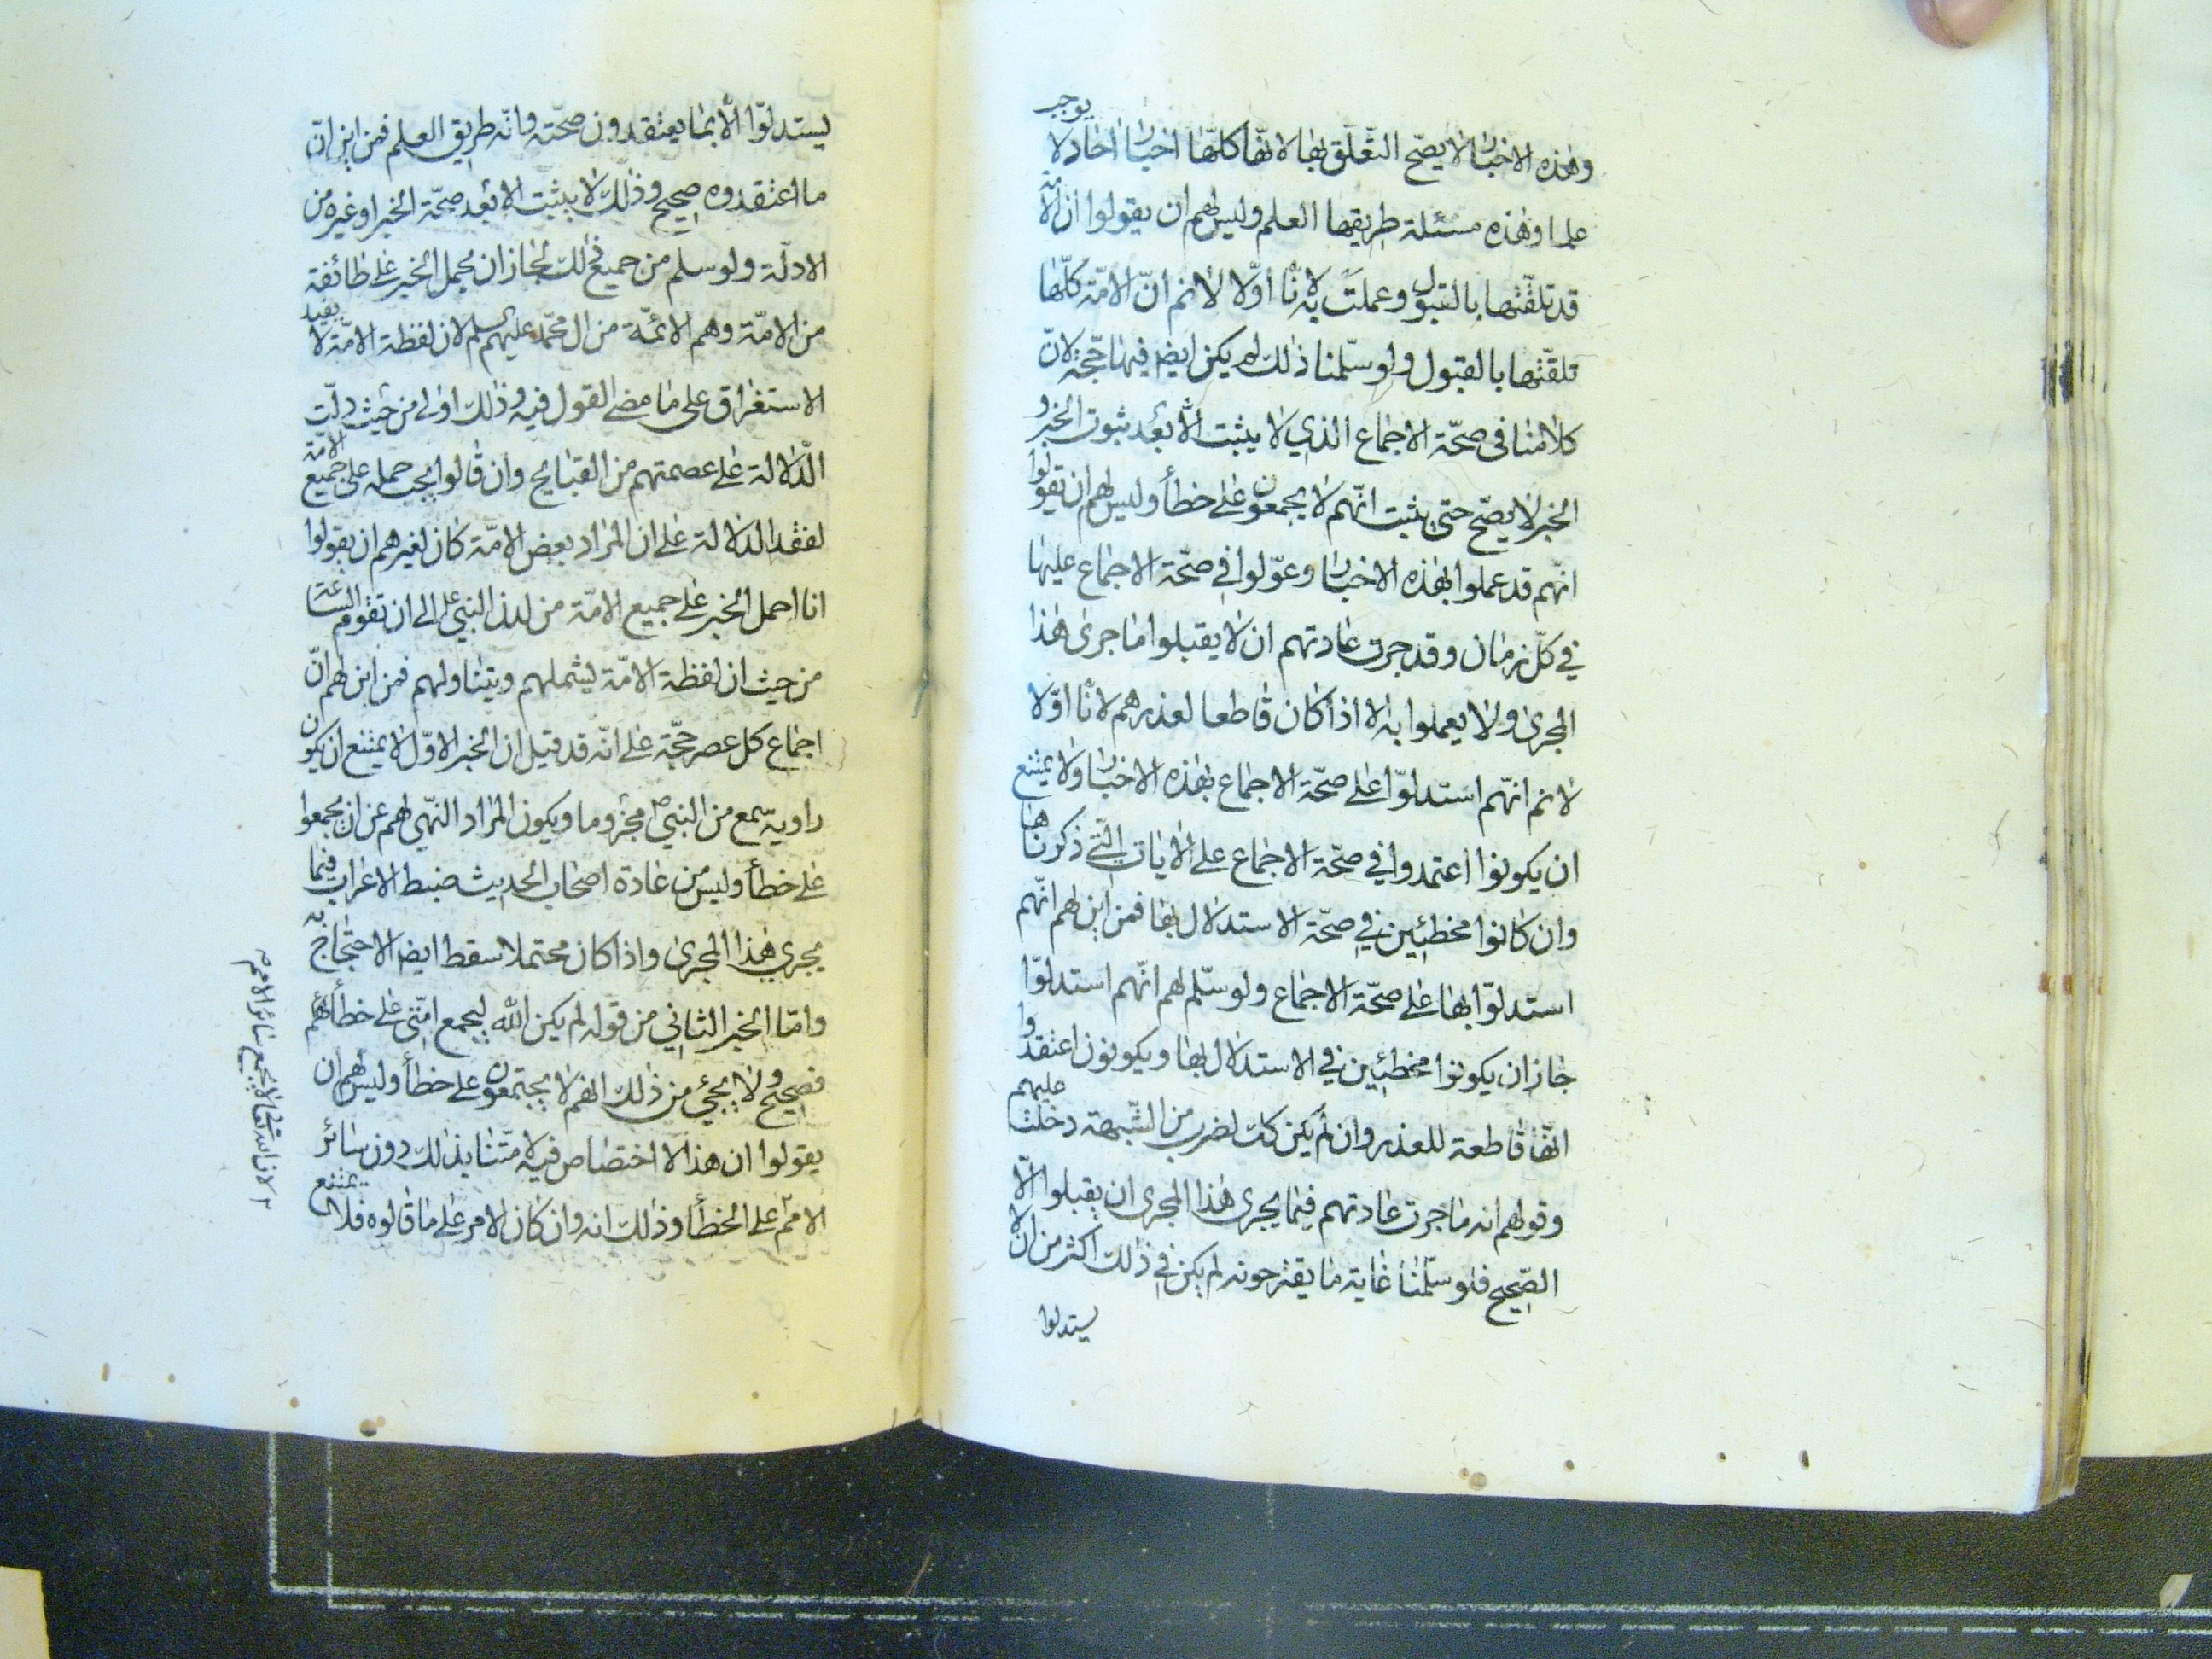 وهذه الاخبار لا يصحّ التعّلق بها لانّها كلّها اخبار احاد لا يوجب
علما وهذه مسئلة طريقها العلم وليس لهم ان يقولوا ان الامة
قد تلقّتها بالقبول وعملت به لانّا اوّلا لانم انّ الامّة كلّها
تلقّتها بالقبول ولو سلّمنا ذلك لم يكن ايضا فيها حجّة لانّ
كلامنا فى صحّة الاجماع الذي لا يثبت الّا بعد ثبوت الخبر و
الخبر لا يصحّ حتى يثبت انّهم لا يجمعون على خطأ وليس لهم ان يقولوا
انّهم قد عملوا بهذه الاخبار وعوّلوا في صحّة الاجماع عليها
في كلّ زمان وقد جرت عادتهم ان لا يقبلوا ما جرى هذا
المجرى ولا يعملوا به الا اذا كان قاطعا لعذرهم لانّا اوّلا
لانم انّهم استدلوّا على صحّة الاجماع بهذه الاخبار ولا يمتنع
ان يكونوا اعتمدوا في صحّة الاجماع على الايات الّتي ذكرناها
وان كانوا مخطئين في صحّة الاستدلال بها فمن اين لهم انّهم
استدلوّا بها على صحّة الاجماع ولو سلّم لهم انّهم استدلوّا
جاز ان يكونوا مخطئين في الاستدلال بها ويكونون اعتقدوا
انّها قاطعة للعذر وان لم يكن كك لضرب من الشّبهة دخلت عليهم
وقولهم انه ما جرت عادتهم فيما يجرى هذا المجرى ان يقبلوا الّا
الصّحيح فلو سلّمنا غاية ما يقترحونه لم يكن في ذلك اكثر من ان لا
يستدلوا
يستدلوّا الّا بما يعتقدون صحّته وانّه طريق العلم فمن اين انّ
ما اعتقدوه صحيح وذلك لا يثبت الا بعد صحّة الخبر او غيره من
الادلّة ولو سلم من جميع ذلك لجاز ان يحمل الخبر على طائفة
من الامّة وهم الائمّة من ال محمّد عليهم السلم لان لفظة الامّة لا يفيد
الاستغراق على ما مضى القول فيه وذلك اولى من حيث دلّت
الدّلالة على عصمتهم من القبايح وان قالوا يجب حمله على جميع الامّة
لفقد الدلالة على ان المراد بعض الامّة كان لغيرهم ان يقولوا
انا احمل الخبر على جميع الامّة من لدن النبي الى ان تقوم الساعة
من حيث ان لفظة الامّة يشملهم ويتناولهم فمن اين لهم انّ
اجماع كل عصر حجّة على انّه قد قيل ان الخبر الاوّل لا يمتنع ان يكون
راويه سمع من النبيّ ص مجزوما ويكون المراد النّهي لهم عن ان يجمعوا
على خطأ وليس من عادة اصحاب الحديث ضبط الاعراب فيما
يجرى هذا المجرى واذا كان محتملا سقط ايضا الاحتجاج به
وامّا الخبر الثاني من قوله لم يكن الله ليجمع امّتى على خطأ فهم
فصحيح ولا يجئ من ذلك انهم لا يجتمعون على خطأ وليس لهم ان
يقولوا ان هذا لا اختصاص فيه لامّتنا بذلك دون سائر
الامم على الخطأ وذلك انه وان كان الامر على ما قالوه فلا يمتنع
لان الله تعالى لا يجمع سائر الامم